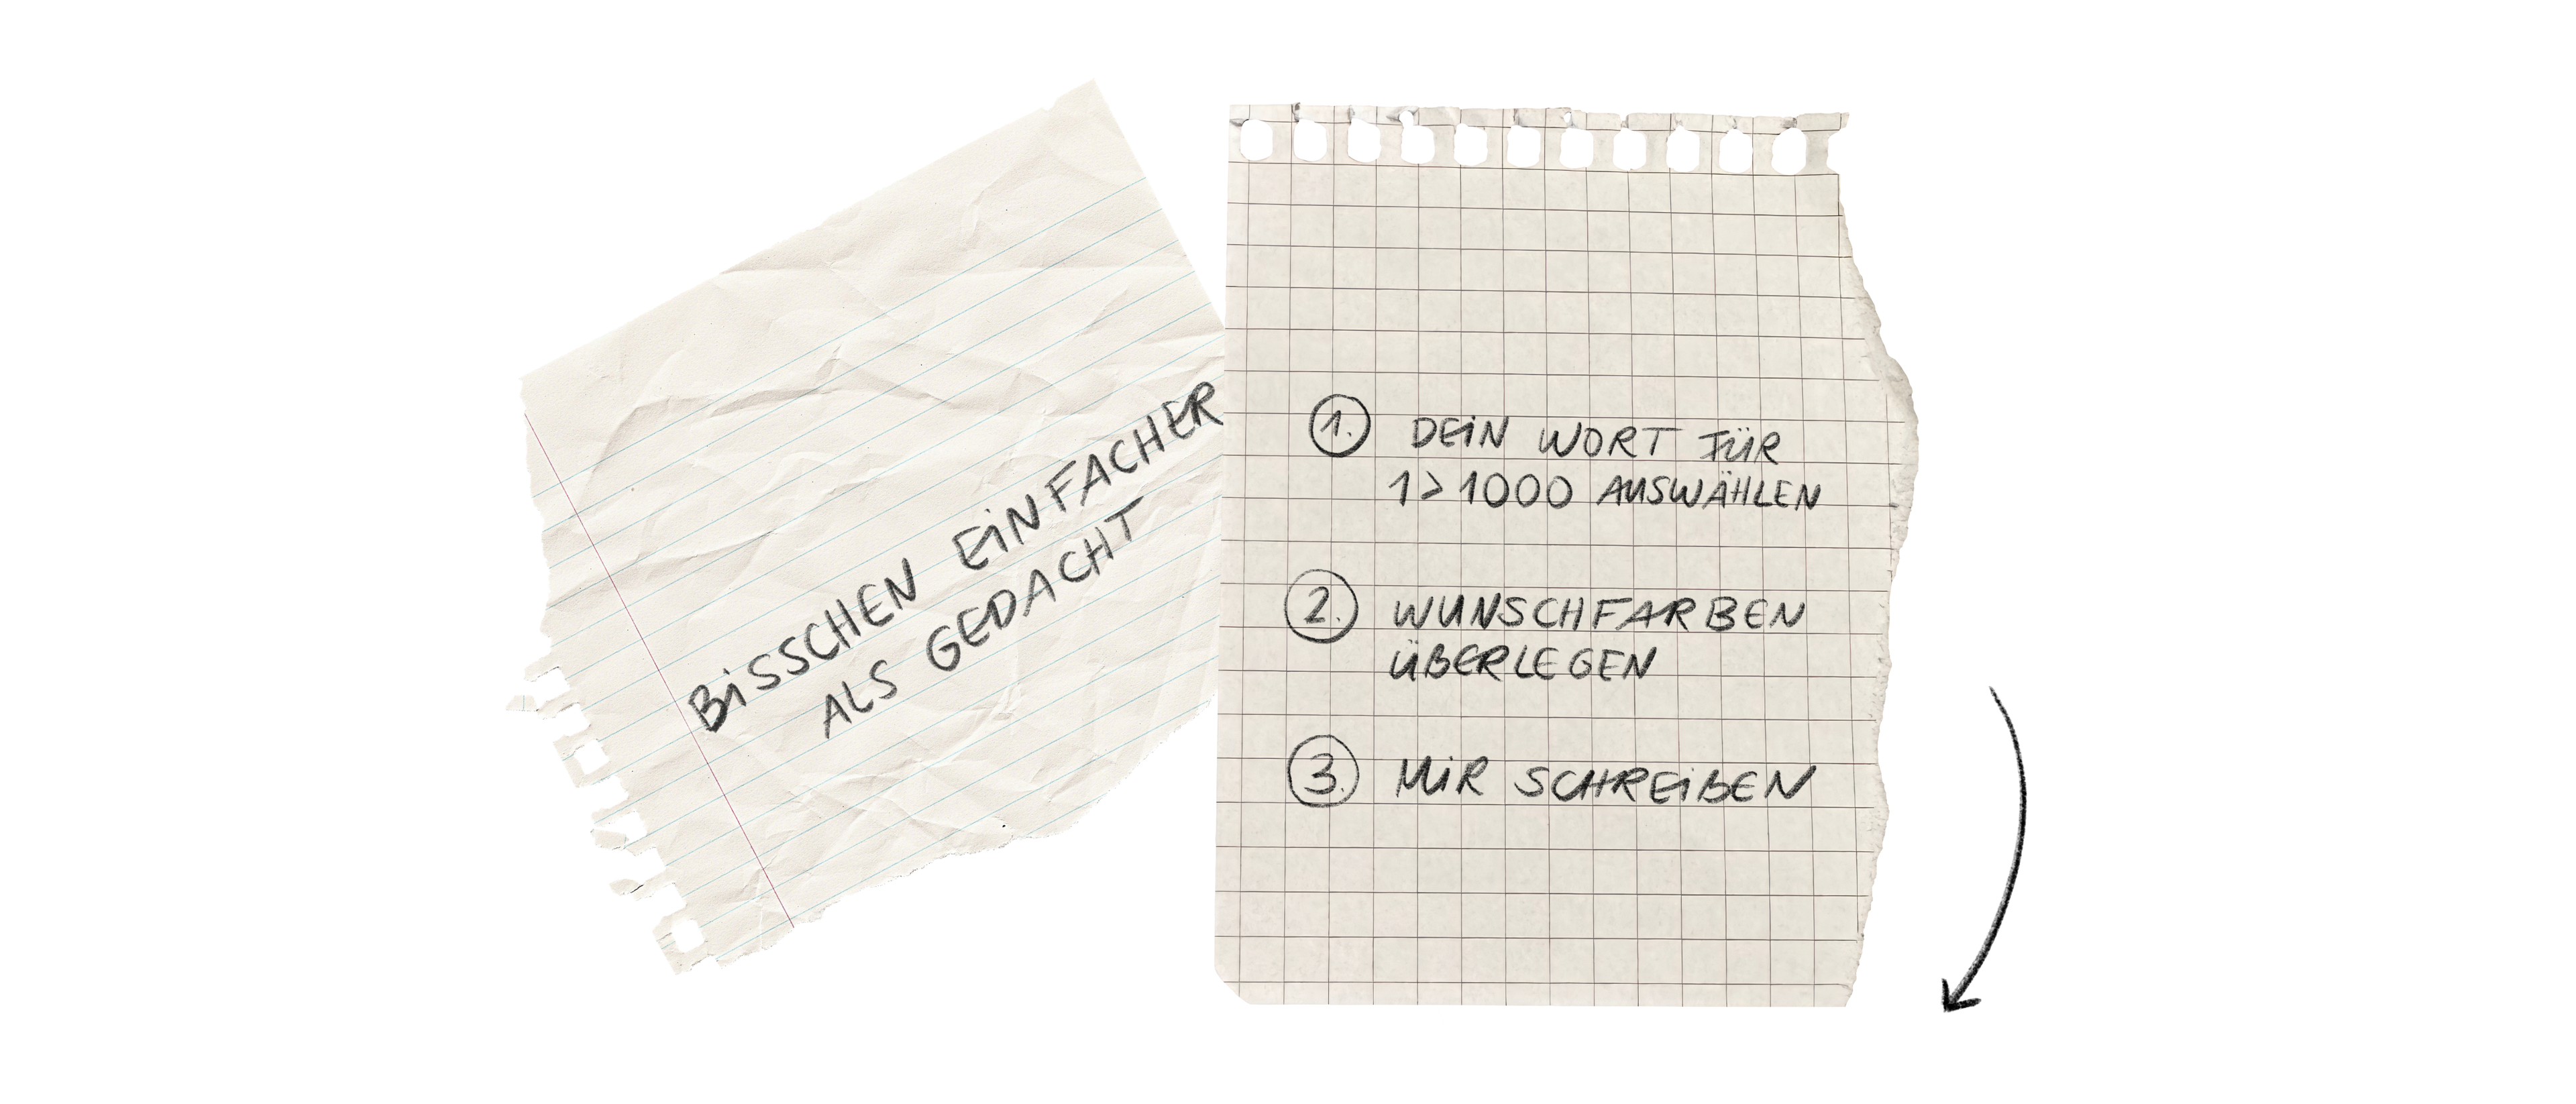 BiSSCHEN EiNFACHER
ALS GEDACHT
1. DEiN WORT FÜR
1>1000 AUSWÄHLEN
2. WUNSCHFARBEN
ÜBERLEGEN
3. MiR SCHREiBEN